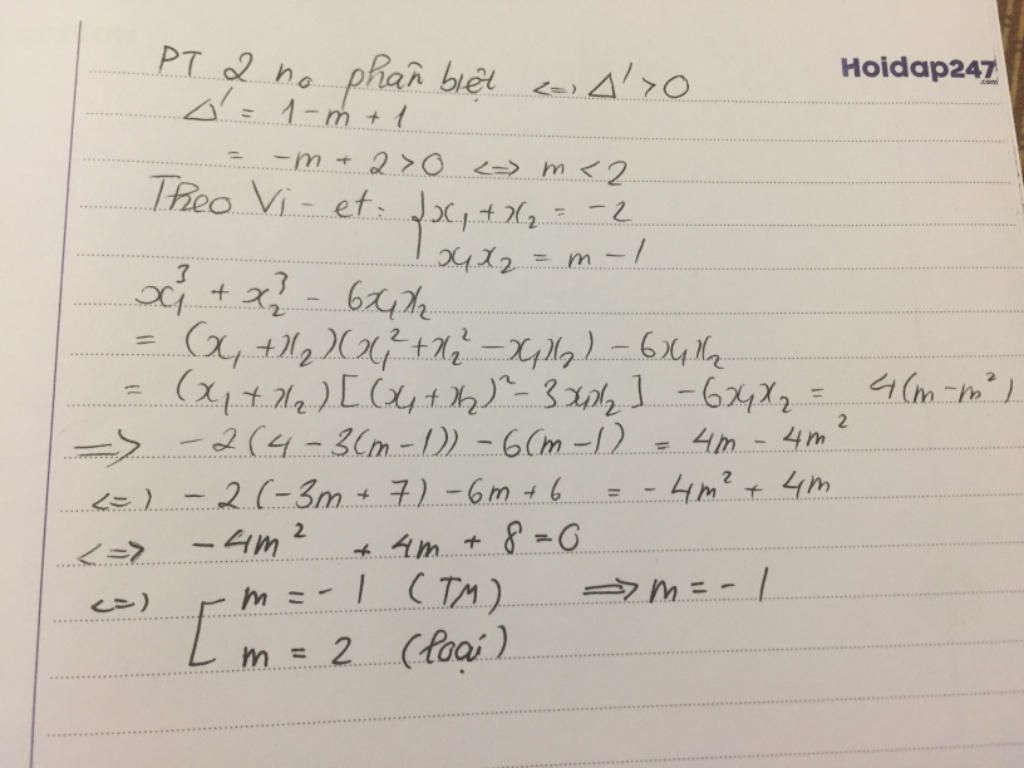 Hoidap247
.com
PT 2 no phân biệt <=> Δ' > 0
Δ' = 1 - m + 1
= -m + 2 > 0 <=> m < 2
Theo Vi-et: { x₁ + x₂ = -2
x₁x₂ = m - 1
x₁³ + x₂³ - 6x₁x₂
= (x₁ + x₂)(x₁² + x₂² - x₁x₂) - 6x₁x₂
= (x₁ + x₂)[(x₁ + x₂)² - 3x₁x₂] - 6x₁x₂ = 4(m - m²)
=> -2(4 - 3(m - 1)) - 6(m - 1) = 4m - 4m²
<=> -2(-3m + 7) - 6m + 6 = -4m² + 4m
<=> -4m² + 4m + 8 = 0
<=> [ m = -1 (TM) => m = -1
m = 2 (loại)